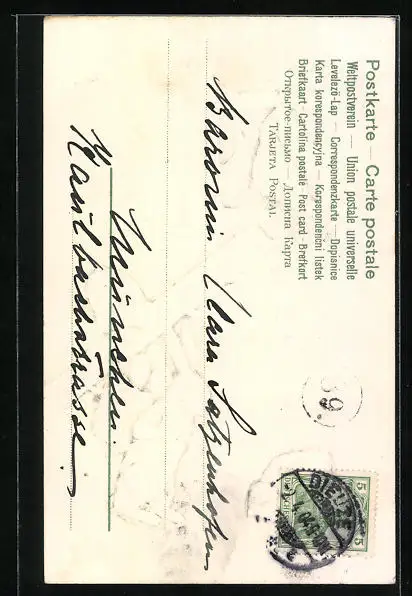 Postkarte — Carte postale
Weltpostverein — Union postale universelle
Levelező-Lap — Correspondenzkarte — Dopisnice
Karta korespondencyjna — Korespondenční lístek
Briefkaart - Cartolina postale - Post card - Brefkort
Открытое письмо — Дописна Карта
TARJETA POSTAL
Baronin Clara
München
Kaulbachstrasse
9.
5 5
DIEUZE